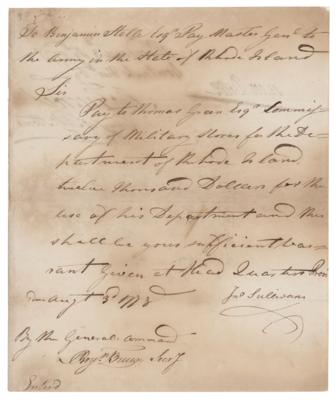 To Benjamin Stelle Esqr. Pay Master Genl. to
the Army in the State of Rhode Island
Sir
Pay to Thomas Green Esqr. Commis-
sary of Military Stores for the De-
partment of Rhode Island
twelve thousand Dollars for the
use of his Department and this
shall be your sufficient War-
rant Given at Head Quarters Provi
dence Augt. 3d. 1778
Jno Sullivan
By the Generals Command